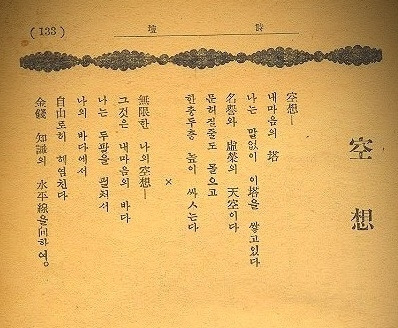 (133)
詩壇
空想
空想—
내마음의 塔
나는 말없이 이塔을 쌓고있다
名譽와 虛榮의 天空에다
문허질줄도 몰으고
한층두층 높이 싸ㅅ는다
×
無限한 나의空想—
그것은 내마음의 바다
나는 두팔을 펼처서
나의 바다에서
自由로히 헤염친다
金錢 知識의 水平線을向하여.